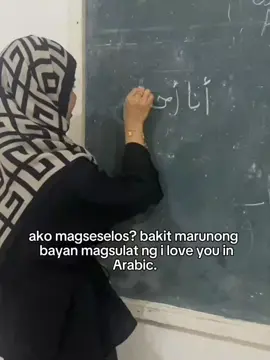 أنا أحـ
ako magseselos? bakit marunong
bayan magsulat ng i love you in
Arabic.